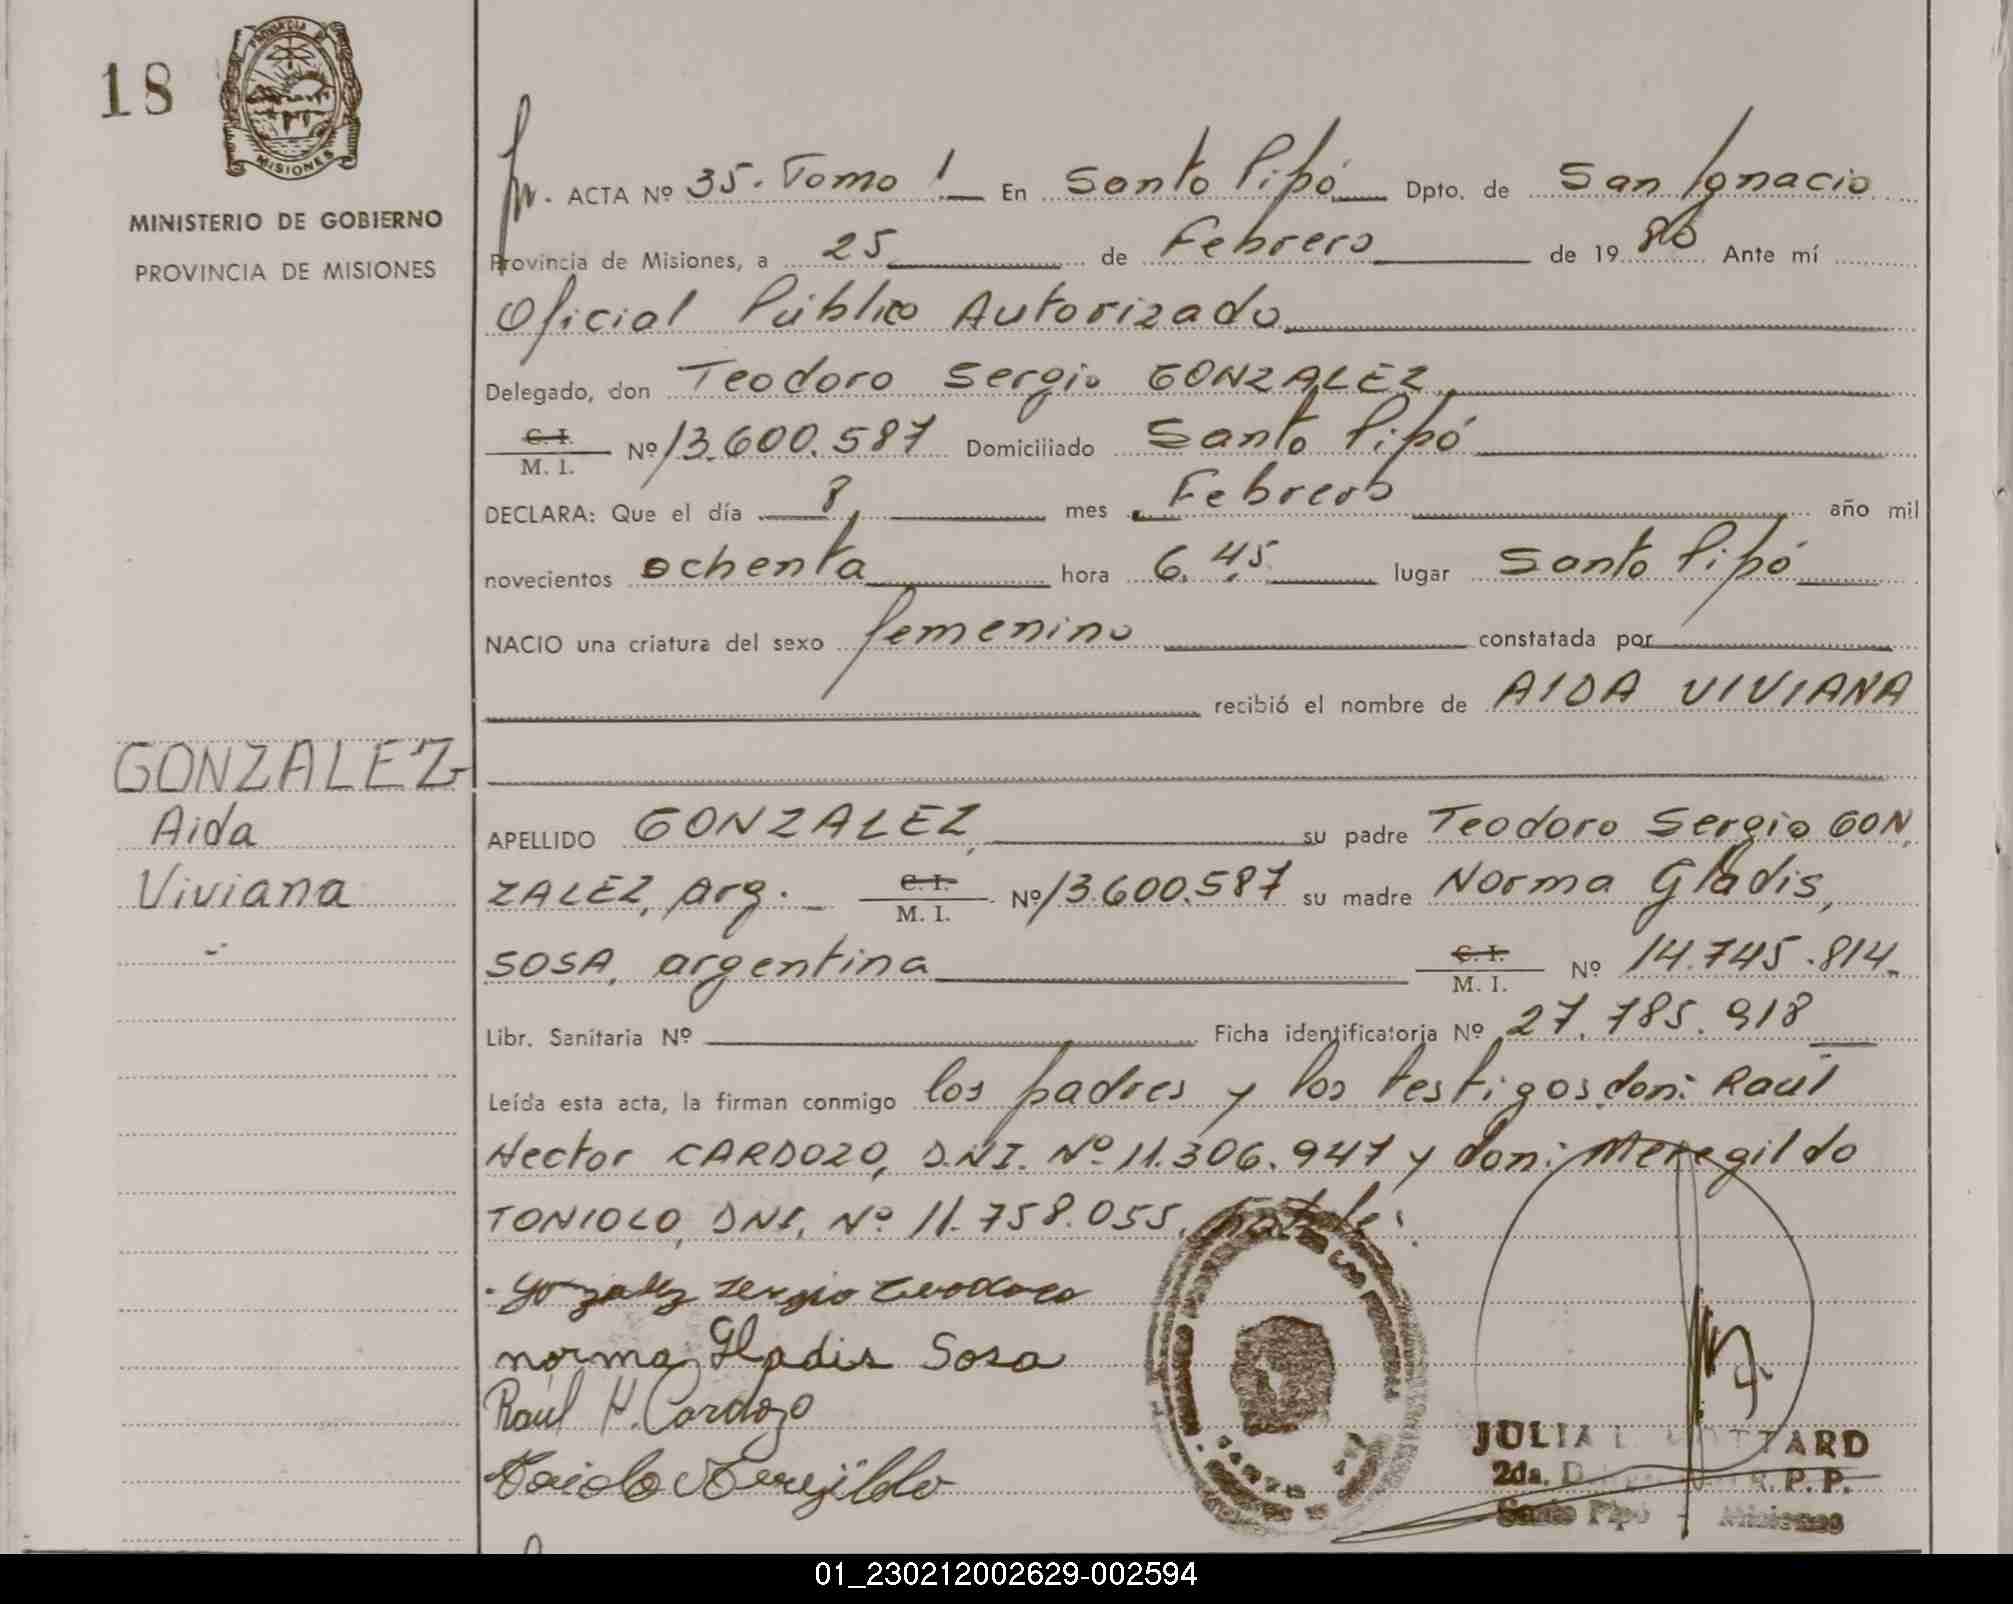 18
PROVINCIA DE
MISIONES
MINISTERIO DE GOBIERNO
PROVINCIA DE MISIONES
ACTA Nº 35. Tomo 1 En Santo Pipó Dpto. de San Ignacio
Provincia de Misiones, a 25 de Febrero de 1980 Ante mí
Oficial Público Autorizado
Delegado, don Teodoro Sergio GONZALEZ
C. I.
M. I. Nº 13.600.587 Domiciliado Santo Pipó
DECLARA: Que el día 8 mes Febrero año mil
novecientos ochenta hora 6.45 lugar Santo Pipó
NACIO una criatura del sexo femenino constatada por
recibió el nombre de AIDA VIVIANA
GONZALEZ
Aida
Viviana
APELLIDO GONZALEZ, su padre Teodoro Sergio GON
ZALEZ, arg. C. I.
M. I. Nº 13.600.587 su madre Norma Gladis,
SOSA, argentina C. I.
M. I. Nº 14.745.814
Libr. Sanitaria Nº Ficha identificatoria Nº 27.785.918
Leída esta acta, la firman conmigo los padres y los testigos, don: Raúl
Hector CARDOZO, D.N.I. Nº 11.306.947 y don: Meregildo
TONIOLO, DNI. Nº 11.758.055,
Gonzalez Sergio Teodoro
norma Gladis Sosa
Raúl H. Cardozo
JULIA
2da. R.P.P.
Santo Pipó - Misiones
01_230212002629-002594